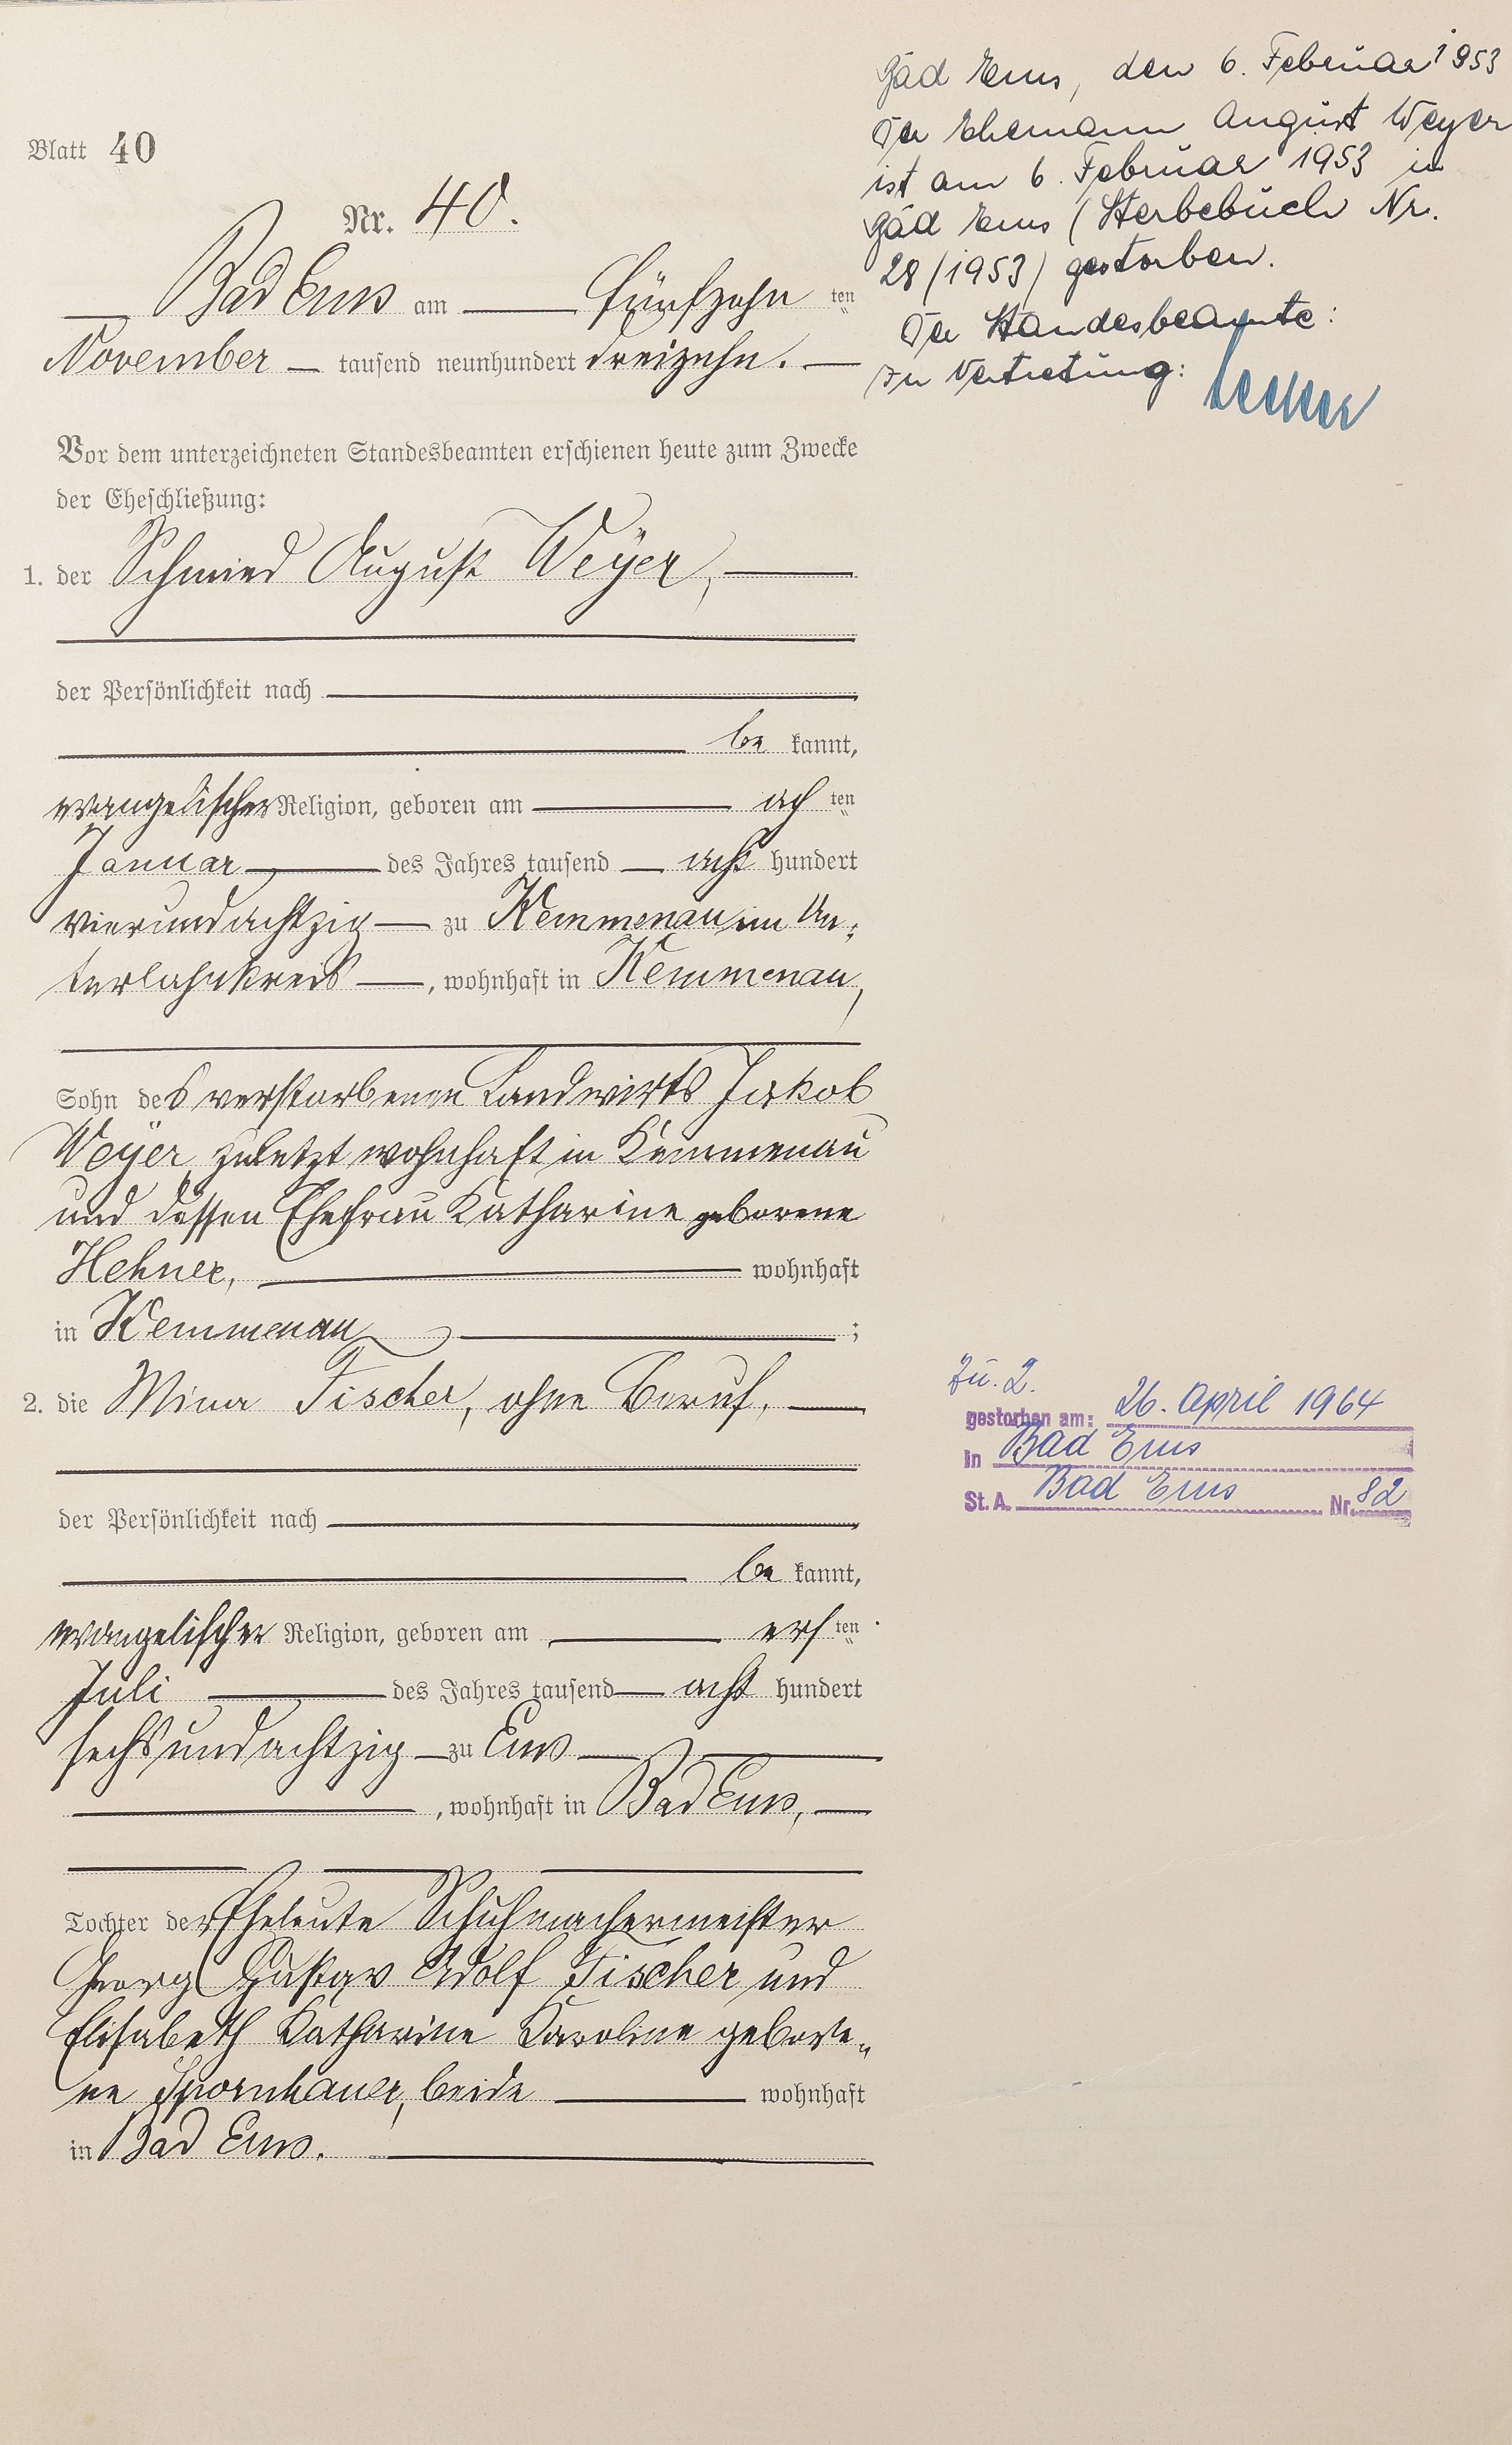 Blatt 40
Nr. 40.
Bad Ems am fünfzehn ten
November tausend neunhundert dreizehn.
Vor dem unterzeichneten Standesbeamten erschienen heute zum Zwecke
der Eheschließung:
1. der Schmied August Weÿer,
der Persönlichkeit nach
be kannt,
evangelischer Religion, geboren am ach ten
Januar des Jahres tausend acht hundert
vierundachtzig zu Kemmenau im Un-
terlahnkreis, wohnhaft in Kemmenau,
Sohn des verstorbenen Landwirts Jakob
Weÿer, zuletzt wohnhaft in Kemmenau
und dessen Ehefrau Katharine geborene
Hehner, wohnhaft
in Kemmenau;
2. die Mina Fischer, ohne Beruf,
der Persönlichkeit nach
be kannt,
evangelischer Religion, geboren am ers ten
Juli des Jahres tausend acht hundert
sechsundachtzig zu Ems
, wohnhaft in Bad Ems,
Tochter der Eheleute Schuhmachermeister
Georg Gustav Adolf Fischer und
Elisabeth Katharine Karoline gebore-
ne Spornhauer, beide wohnhaft
in Bad Ems.
Bad Ems, den 6. Februar 1953
Der Ehemann August Weyer
ist am 6. Februar 1953 in
Bad Ems (Sterbebuch Nr.
28/1953) gestorben.
Der Standesbeamte:
In Vertretung:
Zu. 2.
gestorben am: 26. April 1964
in Bad Ems
St. A. Bad Ems Nr. 82